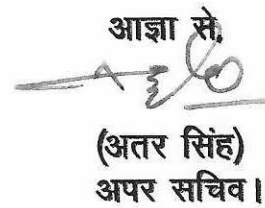 आज्ञा से,
(अतर सिंह)
अपर सचिव।